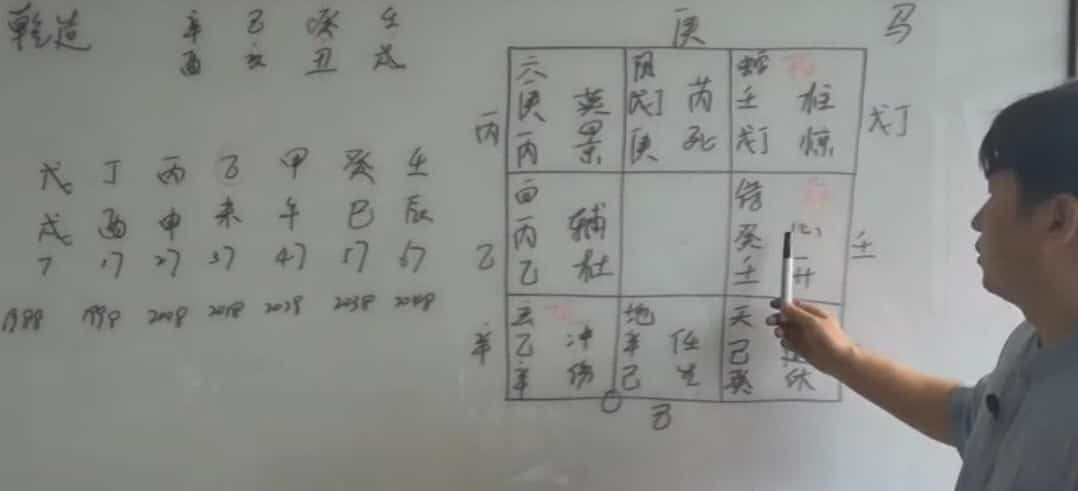 乾造 辛 己 癸 壬
酉 亥 丑 戌
戊 丁 丙 乙 甲 癸 壬
戌 酉 申 未 午 巳 辰
7 17 27 37 47 57 67
1988 1998 2008 2018 2028 2038 2048
庚 马
六 阴 蛇
庚 英 戊丁 芮 壬 柱
丙 丙 景 庚 死 戊丁 惊 戊丁
白
丙 辅 癸 心
乙 乙 杜 壬 开 壬
玄 地 天
乙 冲 辛 任 己
辛 辛 伤 己 生 癸 休
己